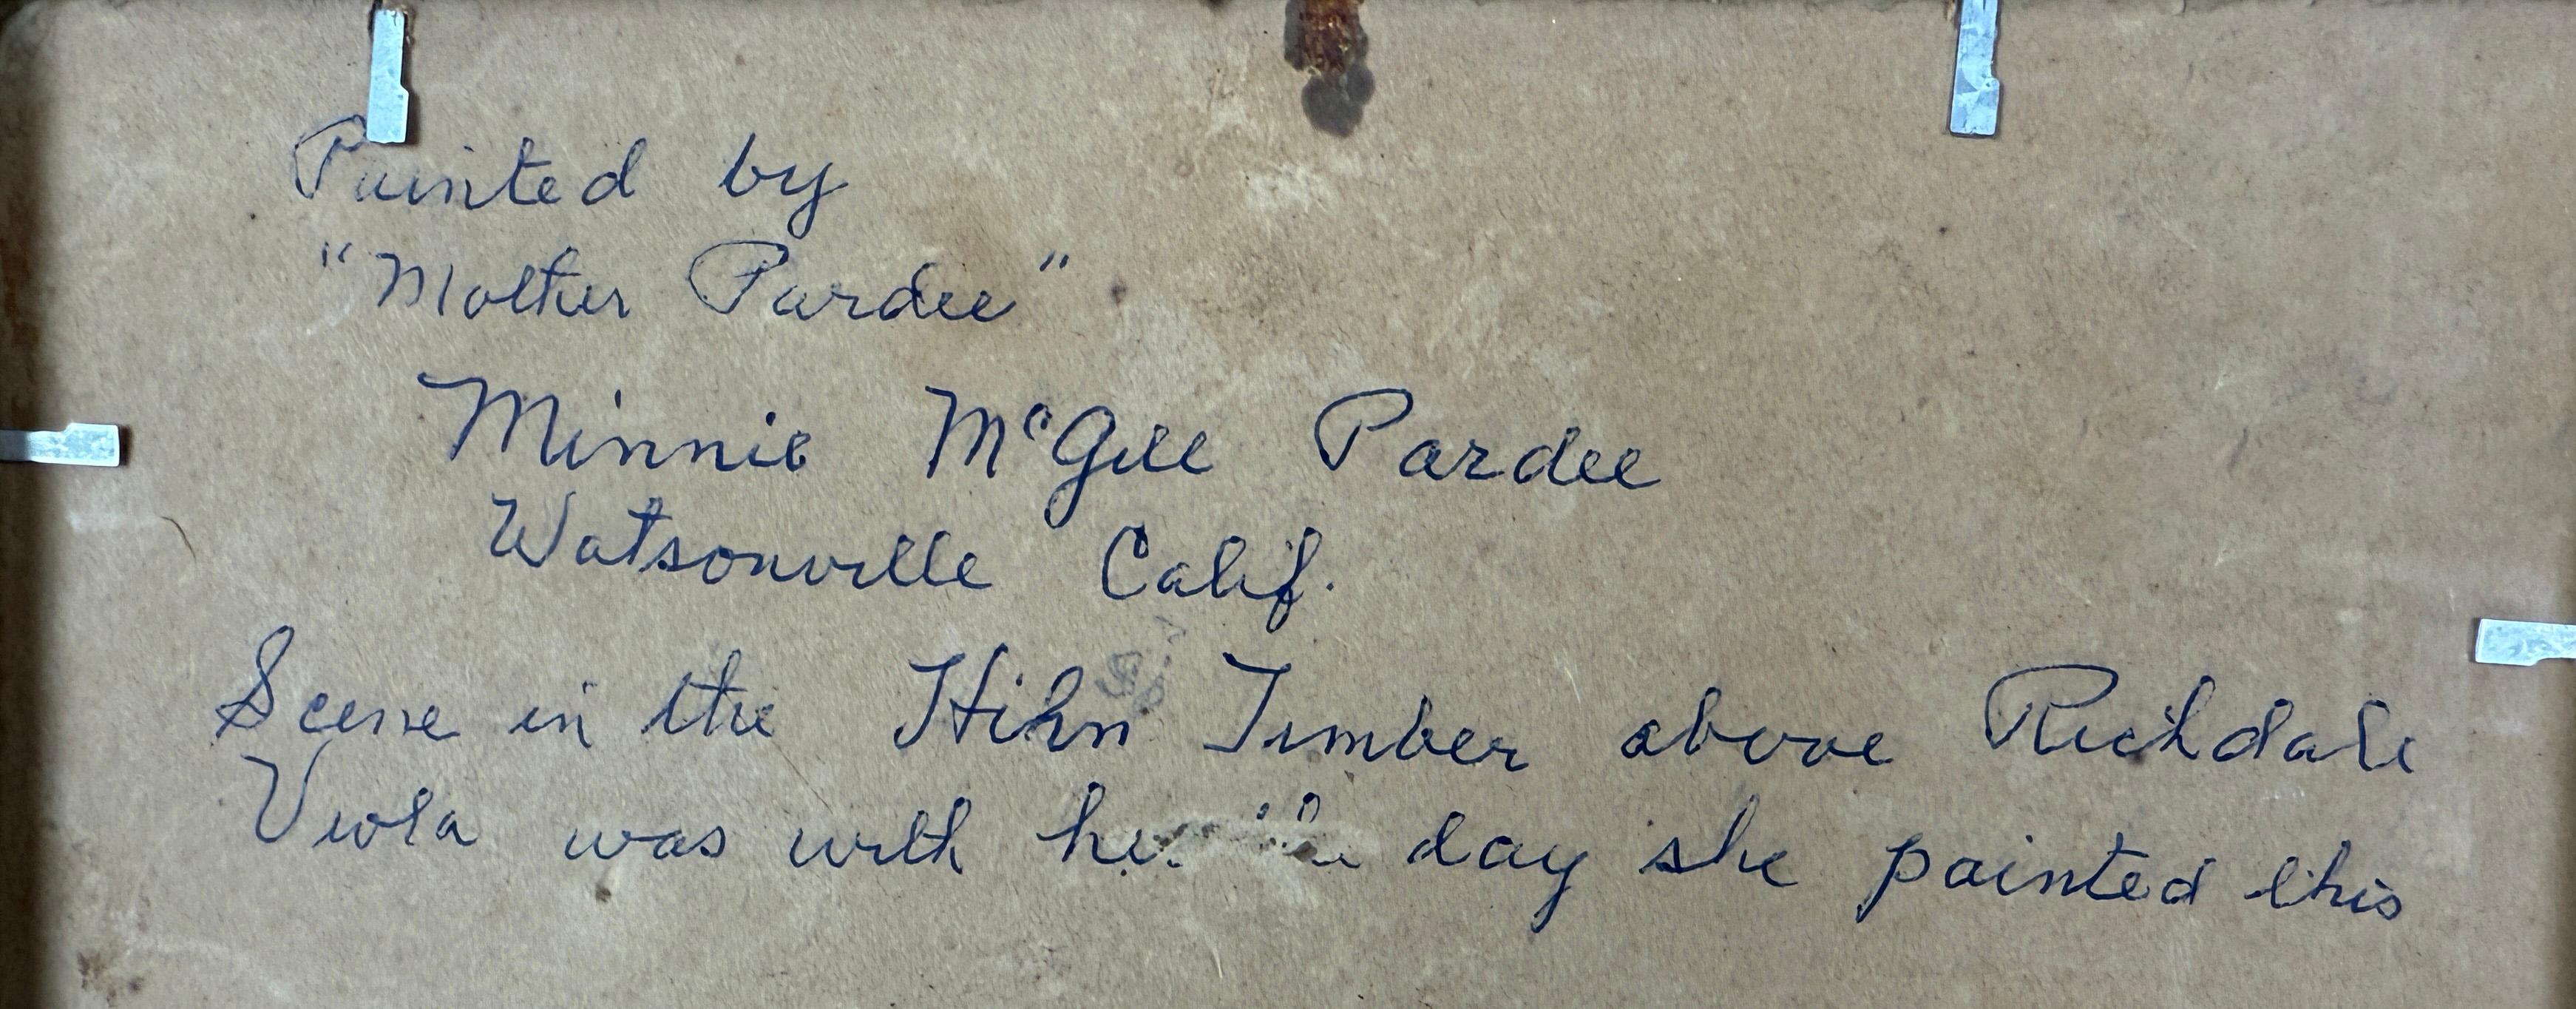 Painted by
"Mother Pardee"
Minnie McGill Pardee
Watsonville Calif.
Scene in the Hihn Timber above Richdale
Viola was with her the day she painted this